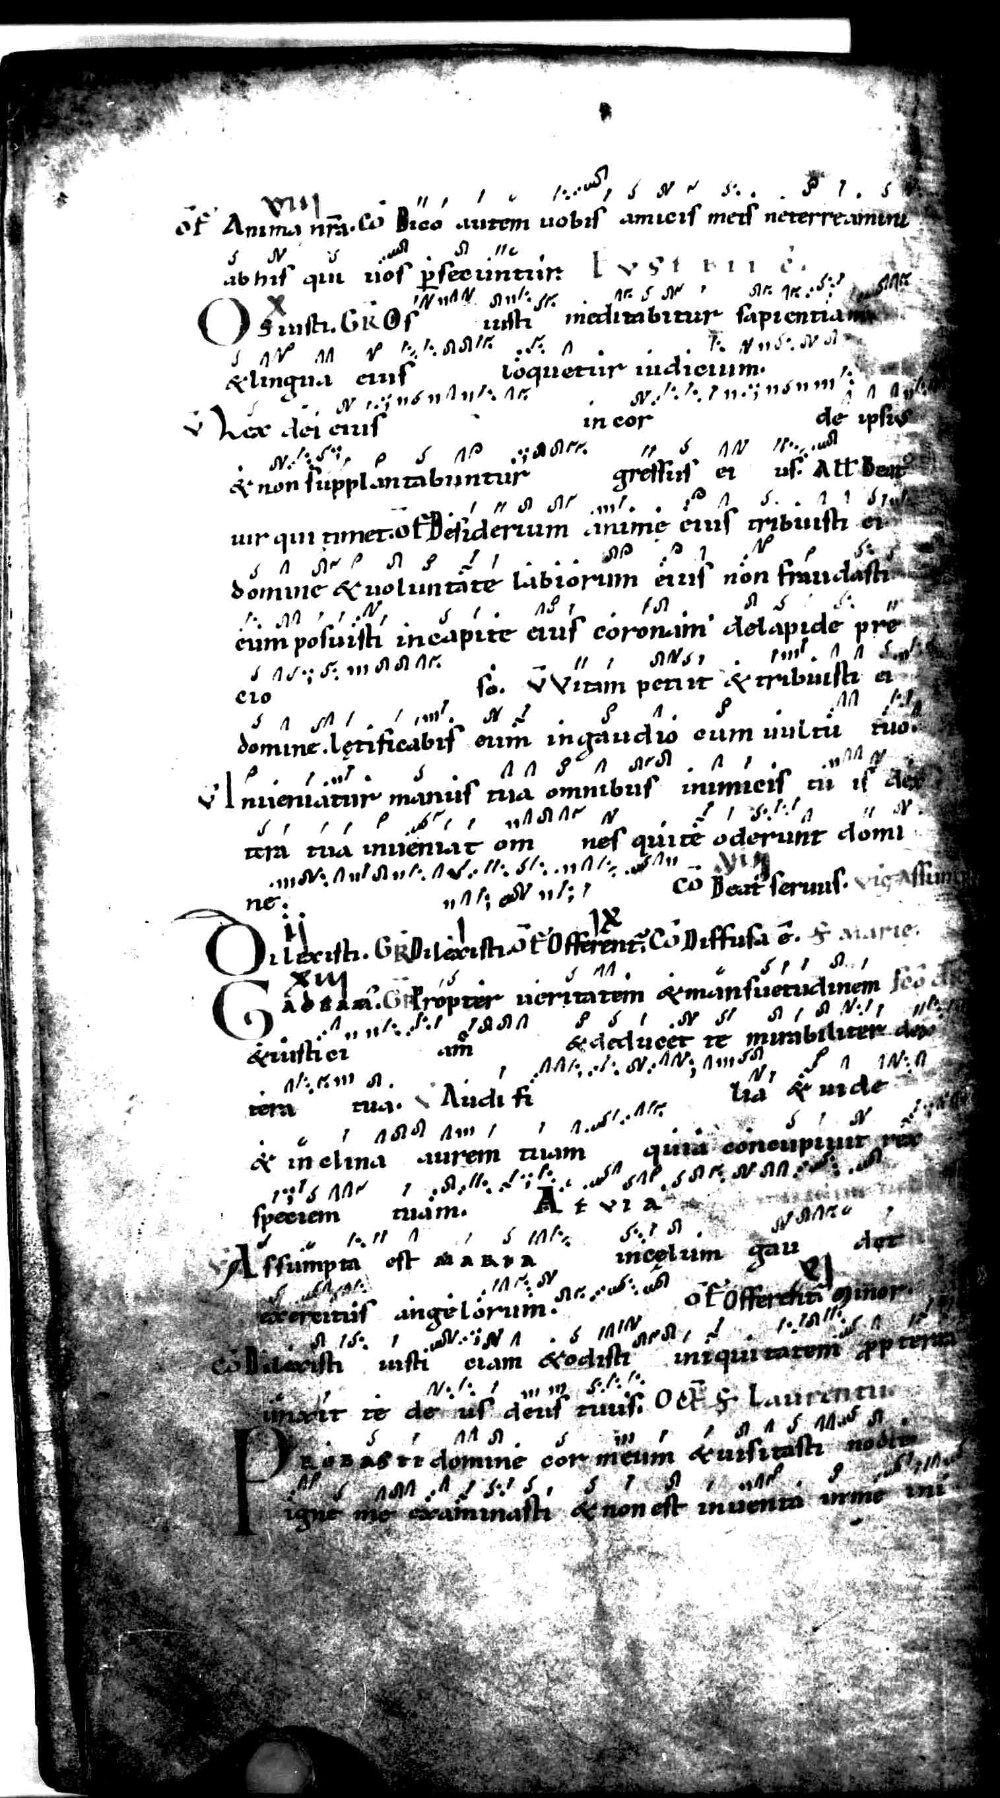 VIIII
Of Anima nr̄a. Cō Dico autem uobis amicis meis neterreamini
abhis qui uos p̄secuntur
X
Os iusti. GR Os iusti meditabitur sapientiam
& lingua eius loquetur iudicium.
V Lex dei eius in cor de ipsius
& non supplantabuntur gressus ei us. All Beat
uir qui timet. Of Desiderium anime eius tribuisti ei
domine & uoluntate labiorum eius non fraudasti
eum posuisti in capite eius coronam de lapide pre
cio so. V Vitam petiit & tribuisti ei
domine. lętificabis eum in gaudio cum uultu tuo.
V Inueniatur manus tua omnibus inimicis tu is dex
tera tua inueniat om nes qui te oderunt domi
ne. VIII Cō Beat seruus. Vig Assum
II I IX
Dilexisti. GR Dilexisti. Of Offerent. Cō Diffusa ē. S Marie.
XIII
Gaudeam. GR Propter ueritatem & mansuetudinem
& iusticiam & deducet te mirabiliter dex
tera tua. V Audi fi lia & uide
& inclina aurem tuam quia concupiuit rex
speciem tuam. AEVIA
V Assumpta est MARIA in celum gau det
exercitus angelorum. VI Of Offerent Minor.
Cō Dilexisti iusti ciam & odisti iniquitatem propterea
unxit te de us deus tuus. Oct S Laurentii
PROBASTI domine cor meum & uisitasti nocte
igne me examinasti & non est inuenta in me ini